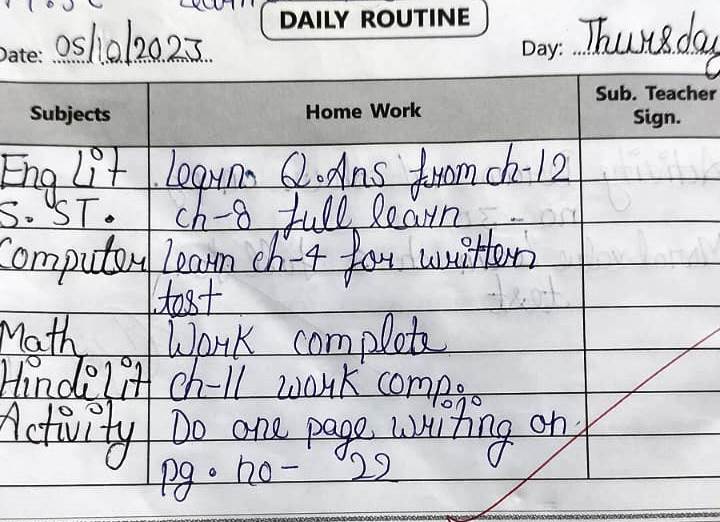 DAILY ROUTINE
Date: 05/10/2023 Day: Thursday
Subjects Home Work Sub. Teacher Sign.
Eng Lit Learn Q.Ans from ch-12
S.ST. ch-8 full learn
Computer learn ch-4 for written
test
Math Work complete
Hindi Lit ch-11 work comp.
Activity Do one page writing on
pg. no- 22